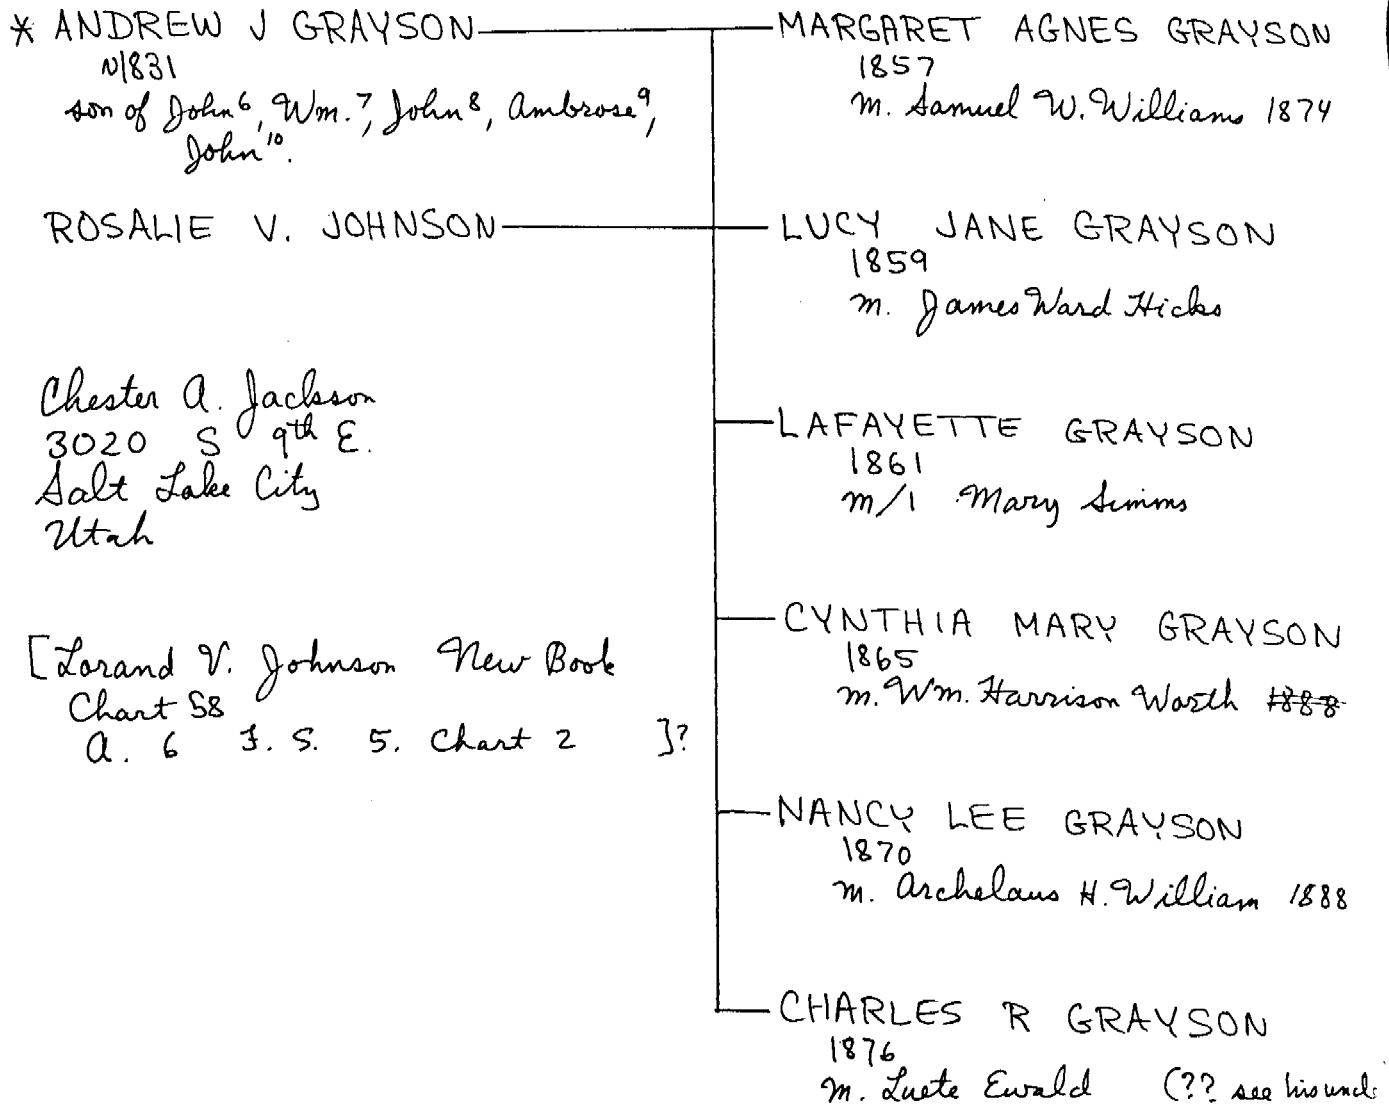 * ANDREW J GRAYSON
N1831
son of John⁶, Wm.⁷, John⁸, Ambrose⁹,
John¹⁰.
ROSALIE V. JOHNSON
Chester A. Jackson
3020 S 9th E.
Salt Lake City
Utah
[Lorand V. Johnson New Book
Chart 58
A. 6 F. S. 5. Chart 2 ]?
MARGARET AGNES GRAYSON
1857
m. Samuel W. Williams 1874
LUCY JANE GRAYSON
1859
m. James Ward Hicks
LAFAYETTE GRAYSON
1861
m/1 Mary Simms
CYNTHIA MARY GRAYSON
1865
m. Wm. Harrison Worth 1888
NANCY LEE GRAYSON
1870
m. Archelaus H. William 1888
CHARLES R GRAYSON
1876
m. Luete Ewald (?? see his uncle